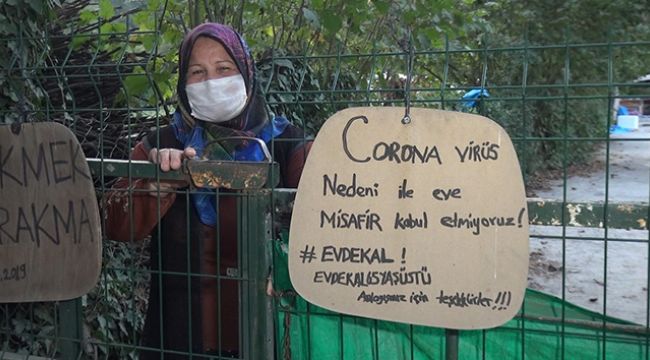 KMEK
RAKMA
.2019
CORONA VİRÜS
Nedeni ile eve
MİSAFİR kabul etmiyoruz!
#EVDEKAL!
EVDEKAL65YAŞÜSTÜ
Anlayışınız için teşekkürler!!!